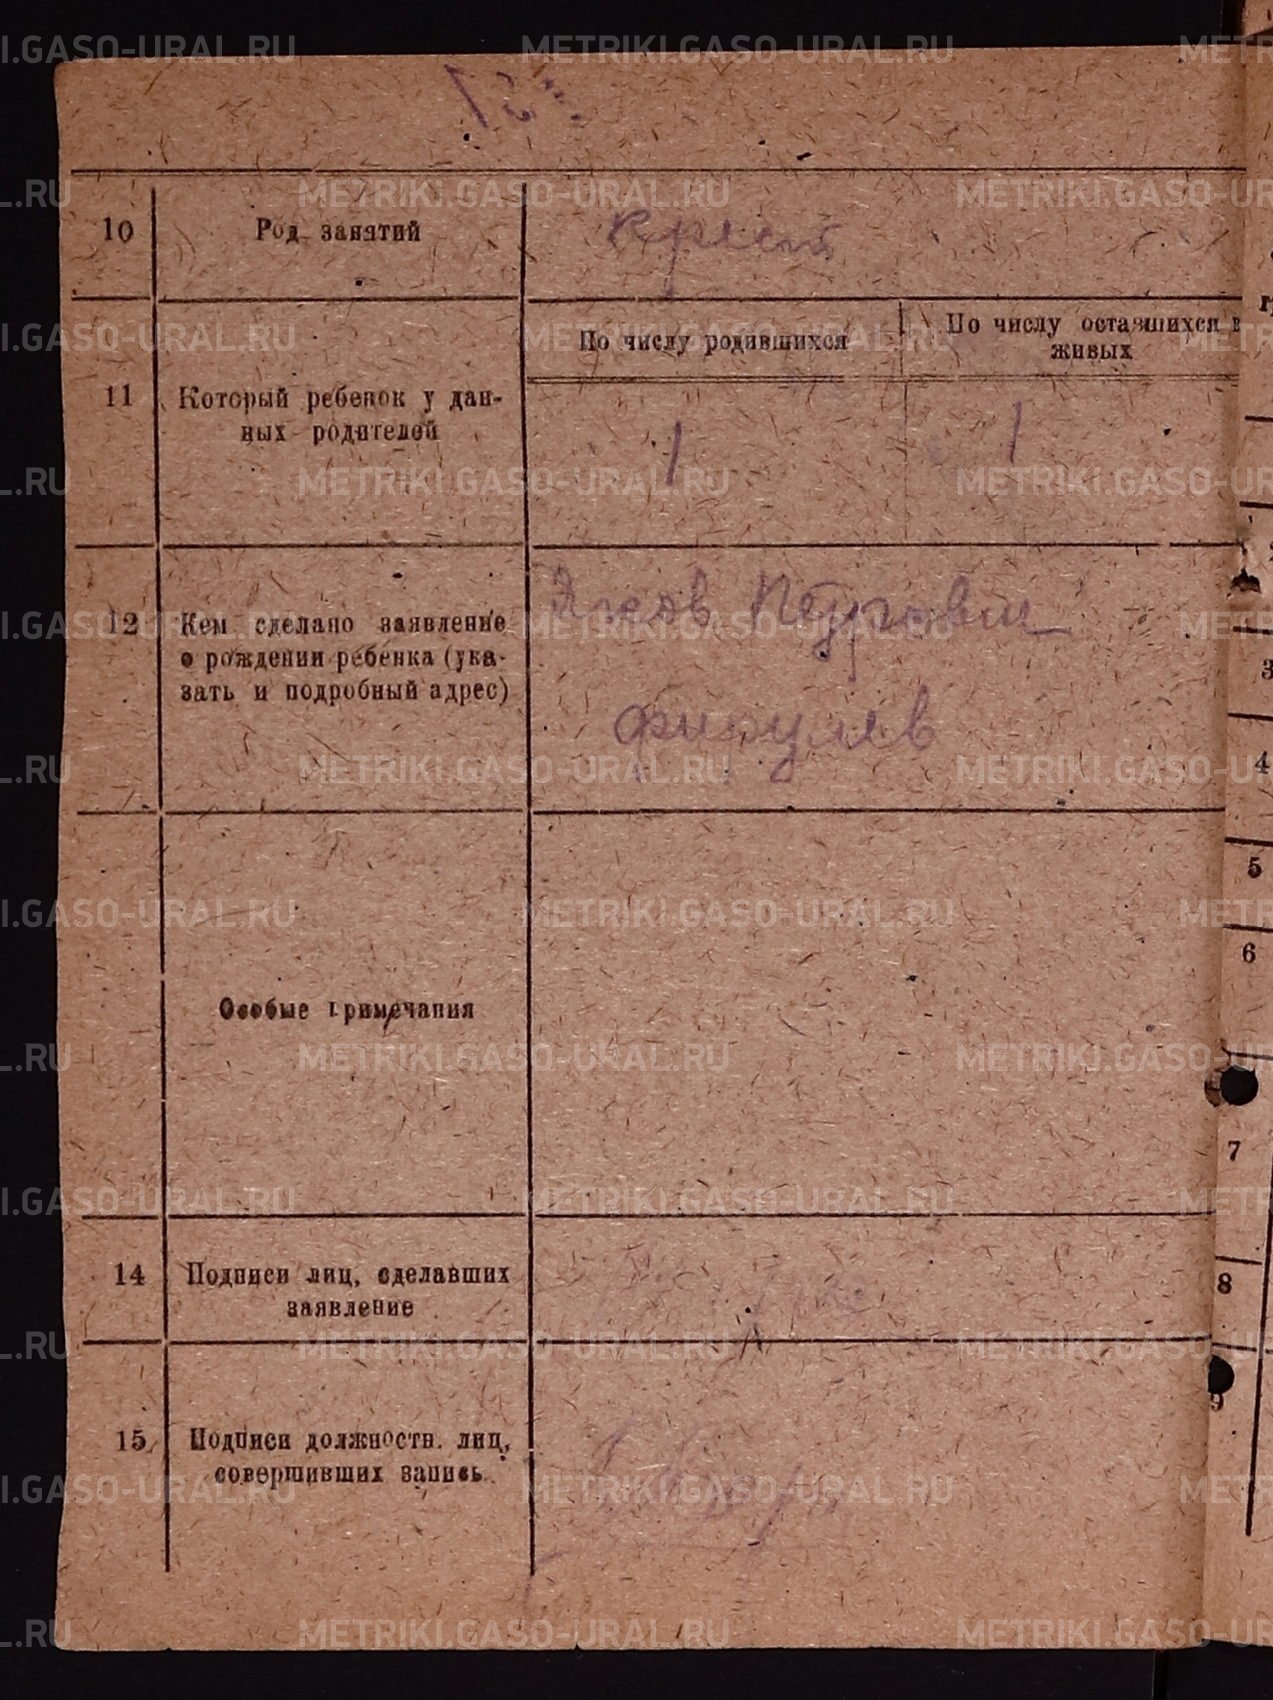 10 Род занятий крест
По числу родившихся
По числу оставшихся в
живых
11 Который ребенок у дан-
ных родителей
1 1
12 Кем сделано заявление
о рождении ребенка (ука-
зать и подробный адрес)
Яков Петрович
Фирулев
Особые примечания
14 Подписи лиц, сделавших
заявление
15 Подписи должностн. лиц,
совершивших запись
3
4
5
6
7
8
9
METRIKI.GASO-URAL.RU